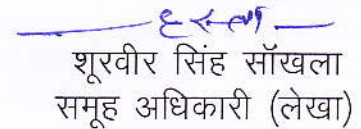 शूरवीर सिंह सॉखला
समूह अधिकारी (लेखा)